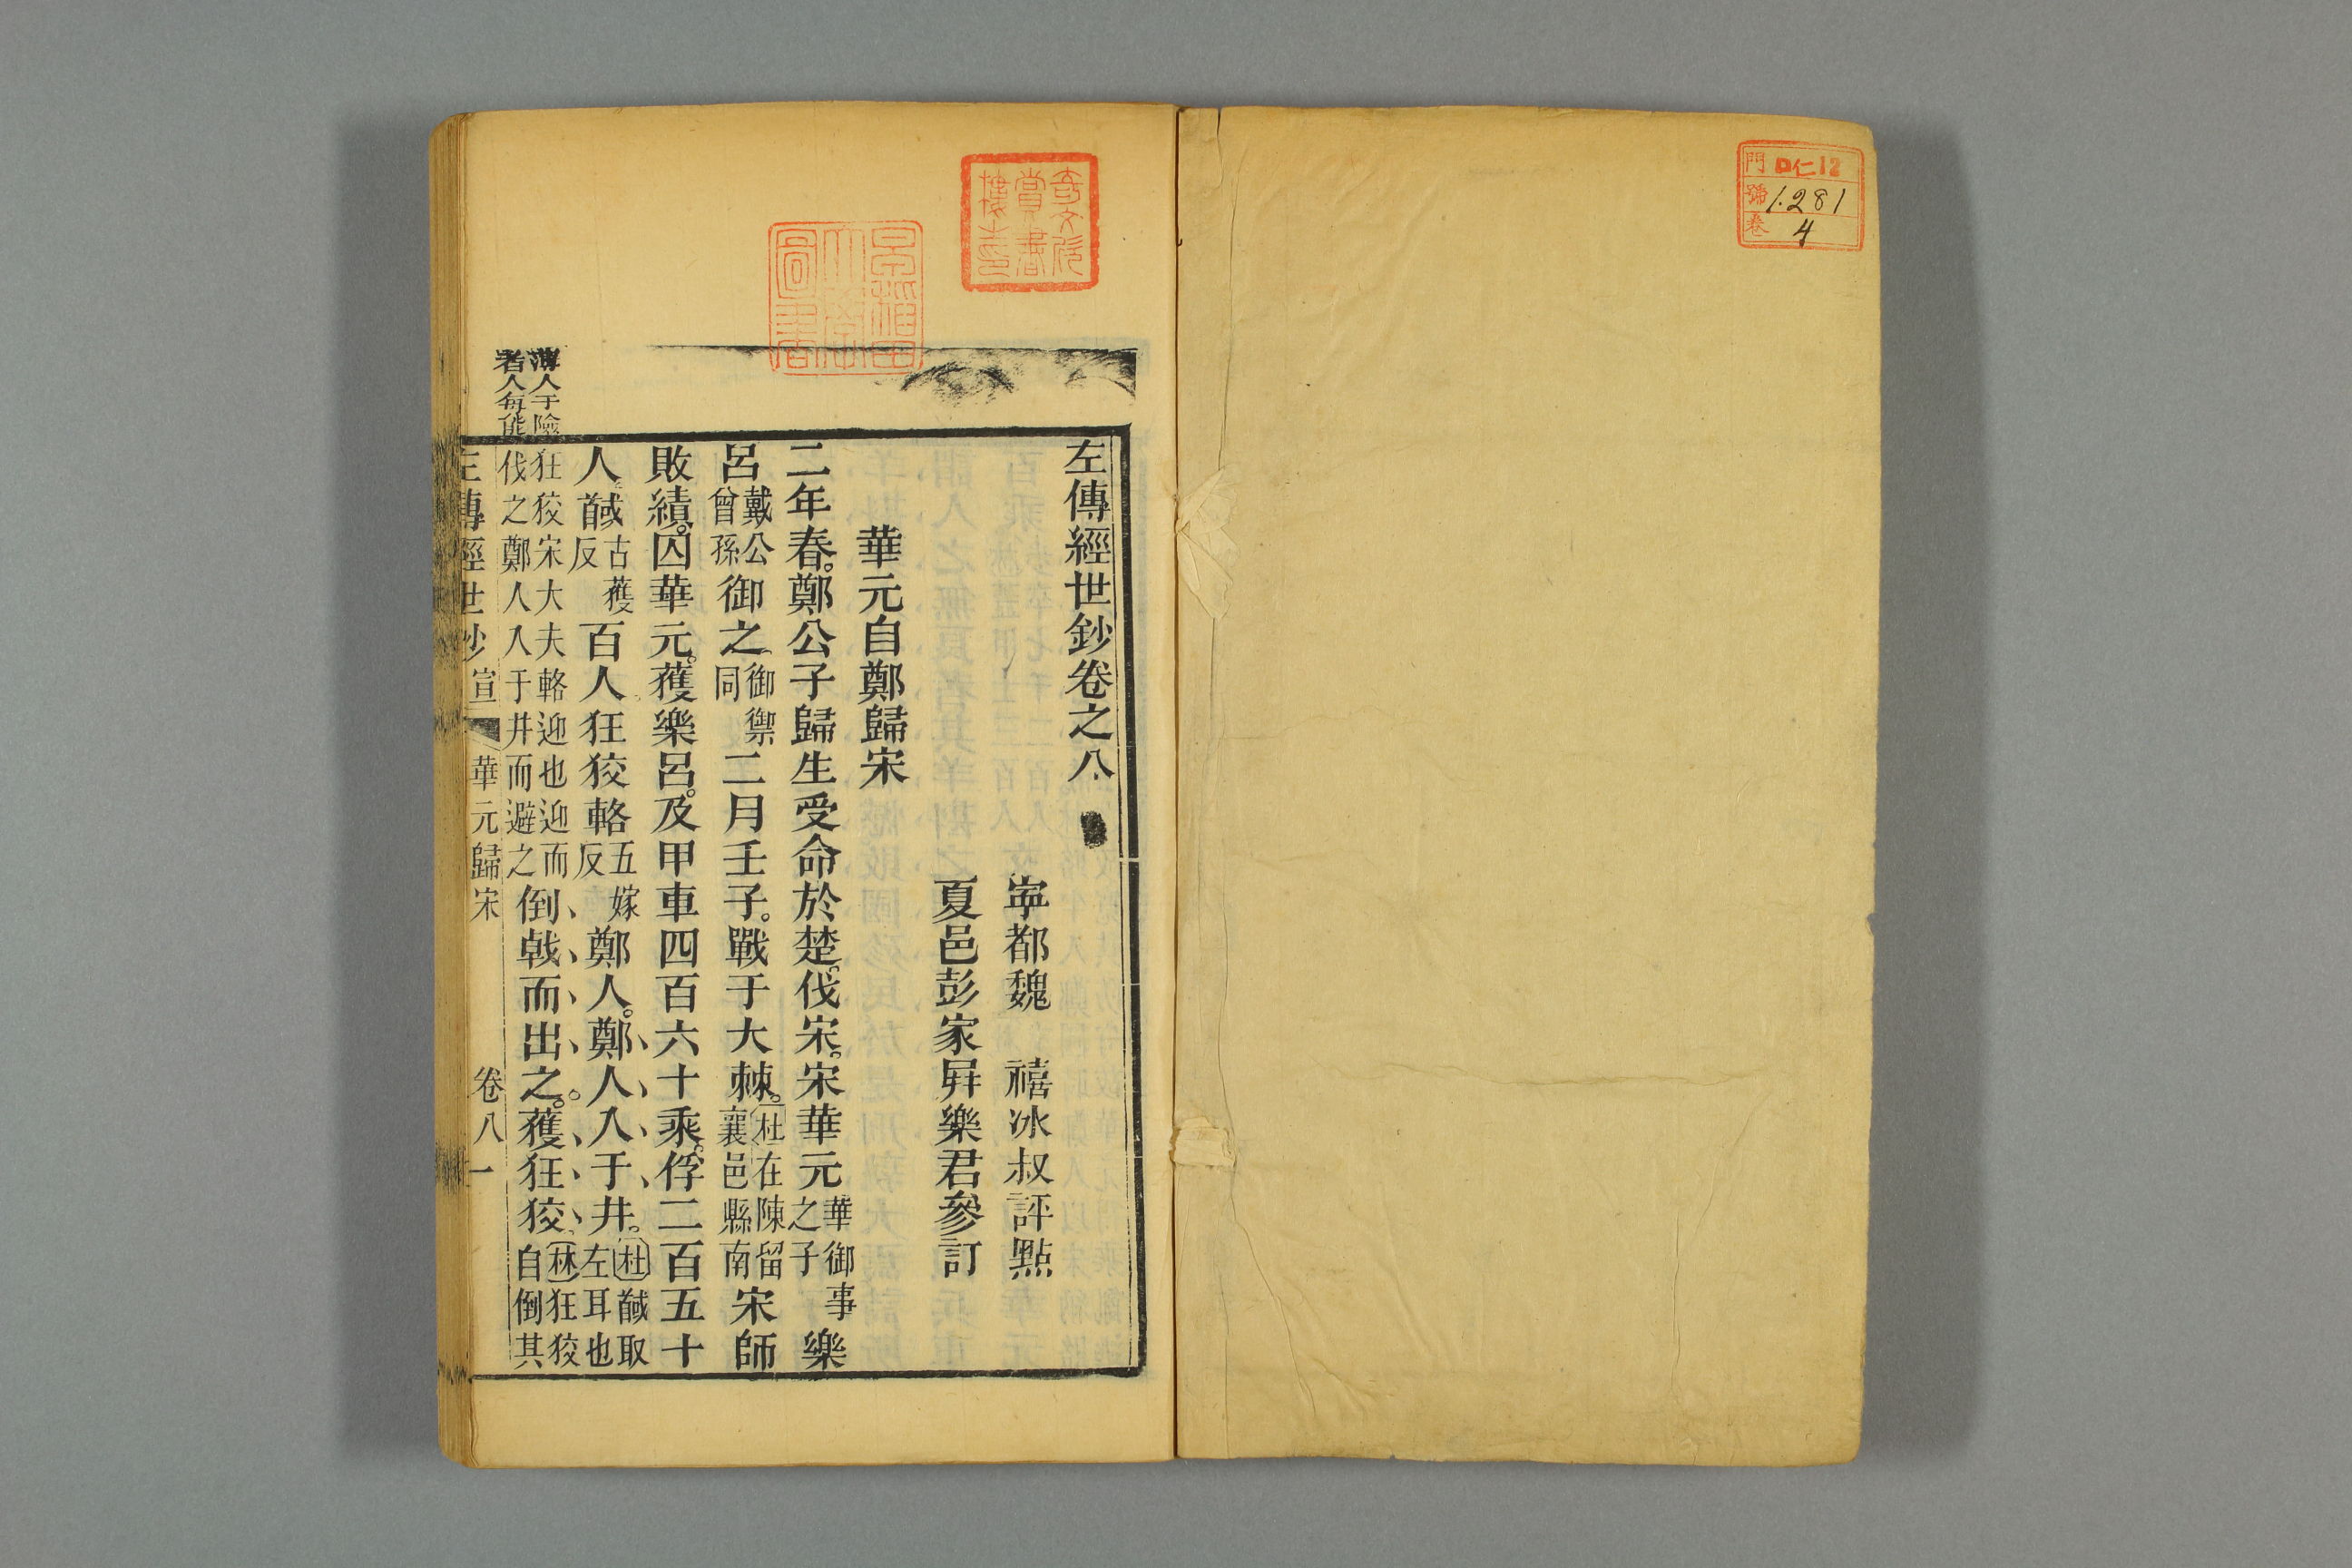 門 ロ仁12
號 1.281
卷 4
左傳經世鈔卷之八
寧都魏 禧冰叔評點
夏邑彭家屛樂君參訂
華元自鄭歸宋
二年春。鄭公子歸生受命於楚。伐宋。宋華元華御事之子樂
呂戴公曾孫御之。御禦同二月壬子。戰于大棘。杜在陳留襄邑縣南宋師
敗績。囚華元。獲樂呂。及甲車四百六十乘。俘二百五十
人。馘古獲反百人狂狡輅五嫁反鄭人。鄭人入于井。杜馘取左耳也林狂狡自倒其
狂狡宋大夫輅迎也迎而伐之鄭人入于井而避之倒戟而出之。獲狂狡、
薄人于險
者人每能
左傳經世鈔 宣 華元歸宋 卷八 一